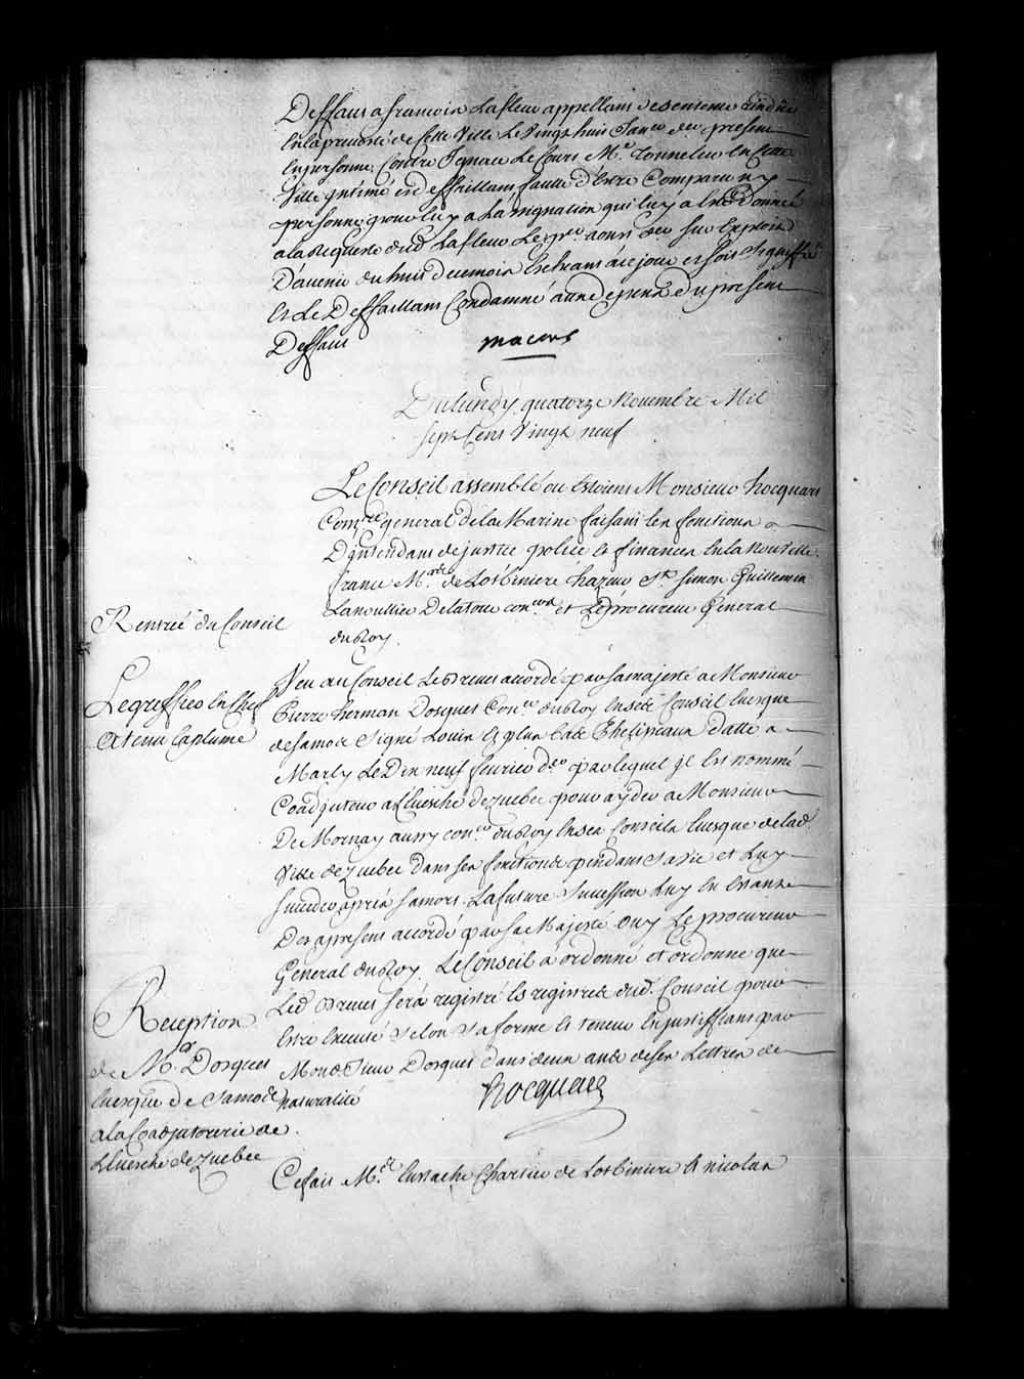 Deffaut a francois Lafleur appellant de sentence rendüe
En la prevosté de Cette Ville Le Vingt huit Janer der present
En personne Contre Ignace Le Cours Me Tonnelier En Cette
Ville jntimé et deffaillant faute d'Estre Comparu ny
personne pour luy a Lassignation qui luy a Esté donnée
a la Requeste dud Lafleur Le
D'avenir du huit du mois Escheant a ce jour et fois Signiffié
Et Le Deffaillant Condamné aux depens du present
Deffaut
macart
Du lundy quatorze Novembre Mil
Sept Cens Vingt neuf
Le Conseil assemblé ou Estoient Monsieur hocquart
Comre general de la Marine faisant les fonctions
D'jntendant de justice police et finances En la Nouvelle
france Mrs de Lotbiniere hazeur St simon Guillemin
Lanoullier Delatour coners et Le procureur General
du Roy.
Rentrée du Conseil
Le greffier En Chef
A tenu La plume
Veu au Conseil Le Brevet accordé par sa majesté a Monsieur
Pierre herman Dosquet Coner du Roy En Ses Conseil Evesque
de Samos Signé Louis Et plus bas Phelipeaux datté a
Marly Le Dix neuf fevrier der par lequel jl Est nommé
Coadjuteur a L'Evesché de Quebec pour ayder a Monsieur
De Mornay aussy coner du Roy En ses Conseils Evesque de lad.
Ville de Quebec dans ses fonctions pendant sa vie et Luy
succeder après sa mort La future Succession Luy En Estant
Des a present accordé par sa Majesté Ouy Le procureur
General du Roy. Le Conseil a ordonné et ordonne que
Led Brevet sera registré Es registres dud. Conseil pour
Estre Executé selon sa forme Et teneur En justiffiant par
Mond. Sieur Dosquet dans deux ans de ses Lettres de
naturalité
hocquart
Reception
de Mr Dosquet
Evesque de Samos
a la Coadjutorerie de
L'Evesché de Quebec
Ce fait Mes Eustache Chartier de Lotbiniere Et nicolas